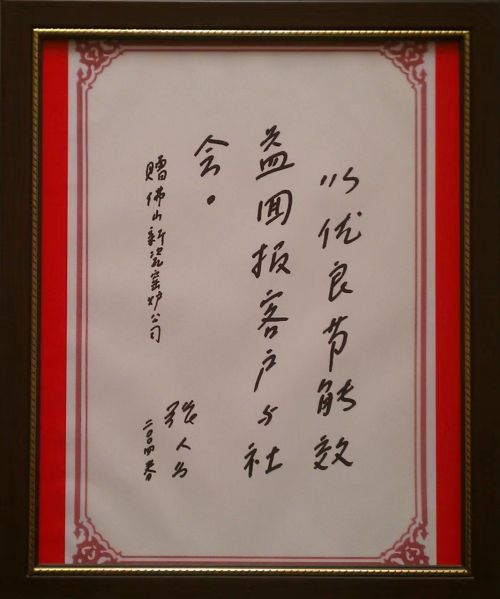 以优良节能效
益回报客户与社
会。
赠佛山新瓷窑炉公司
张人为
二〇〇四春